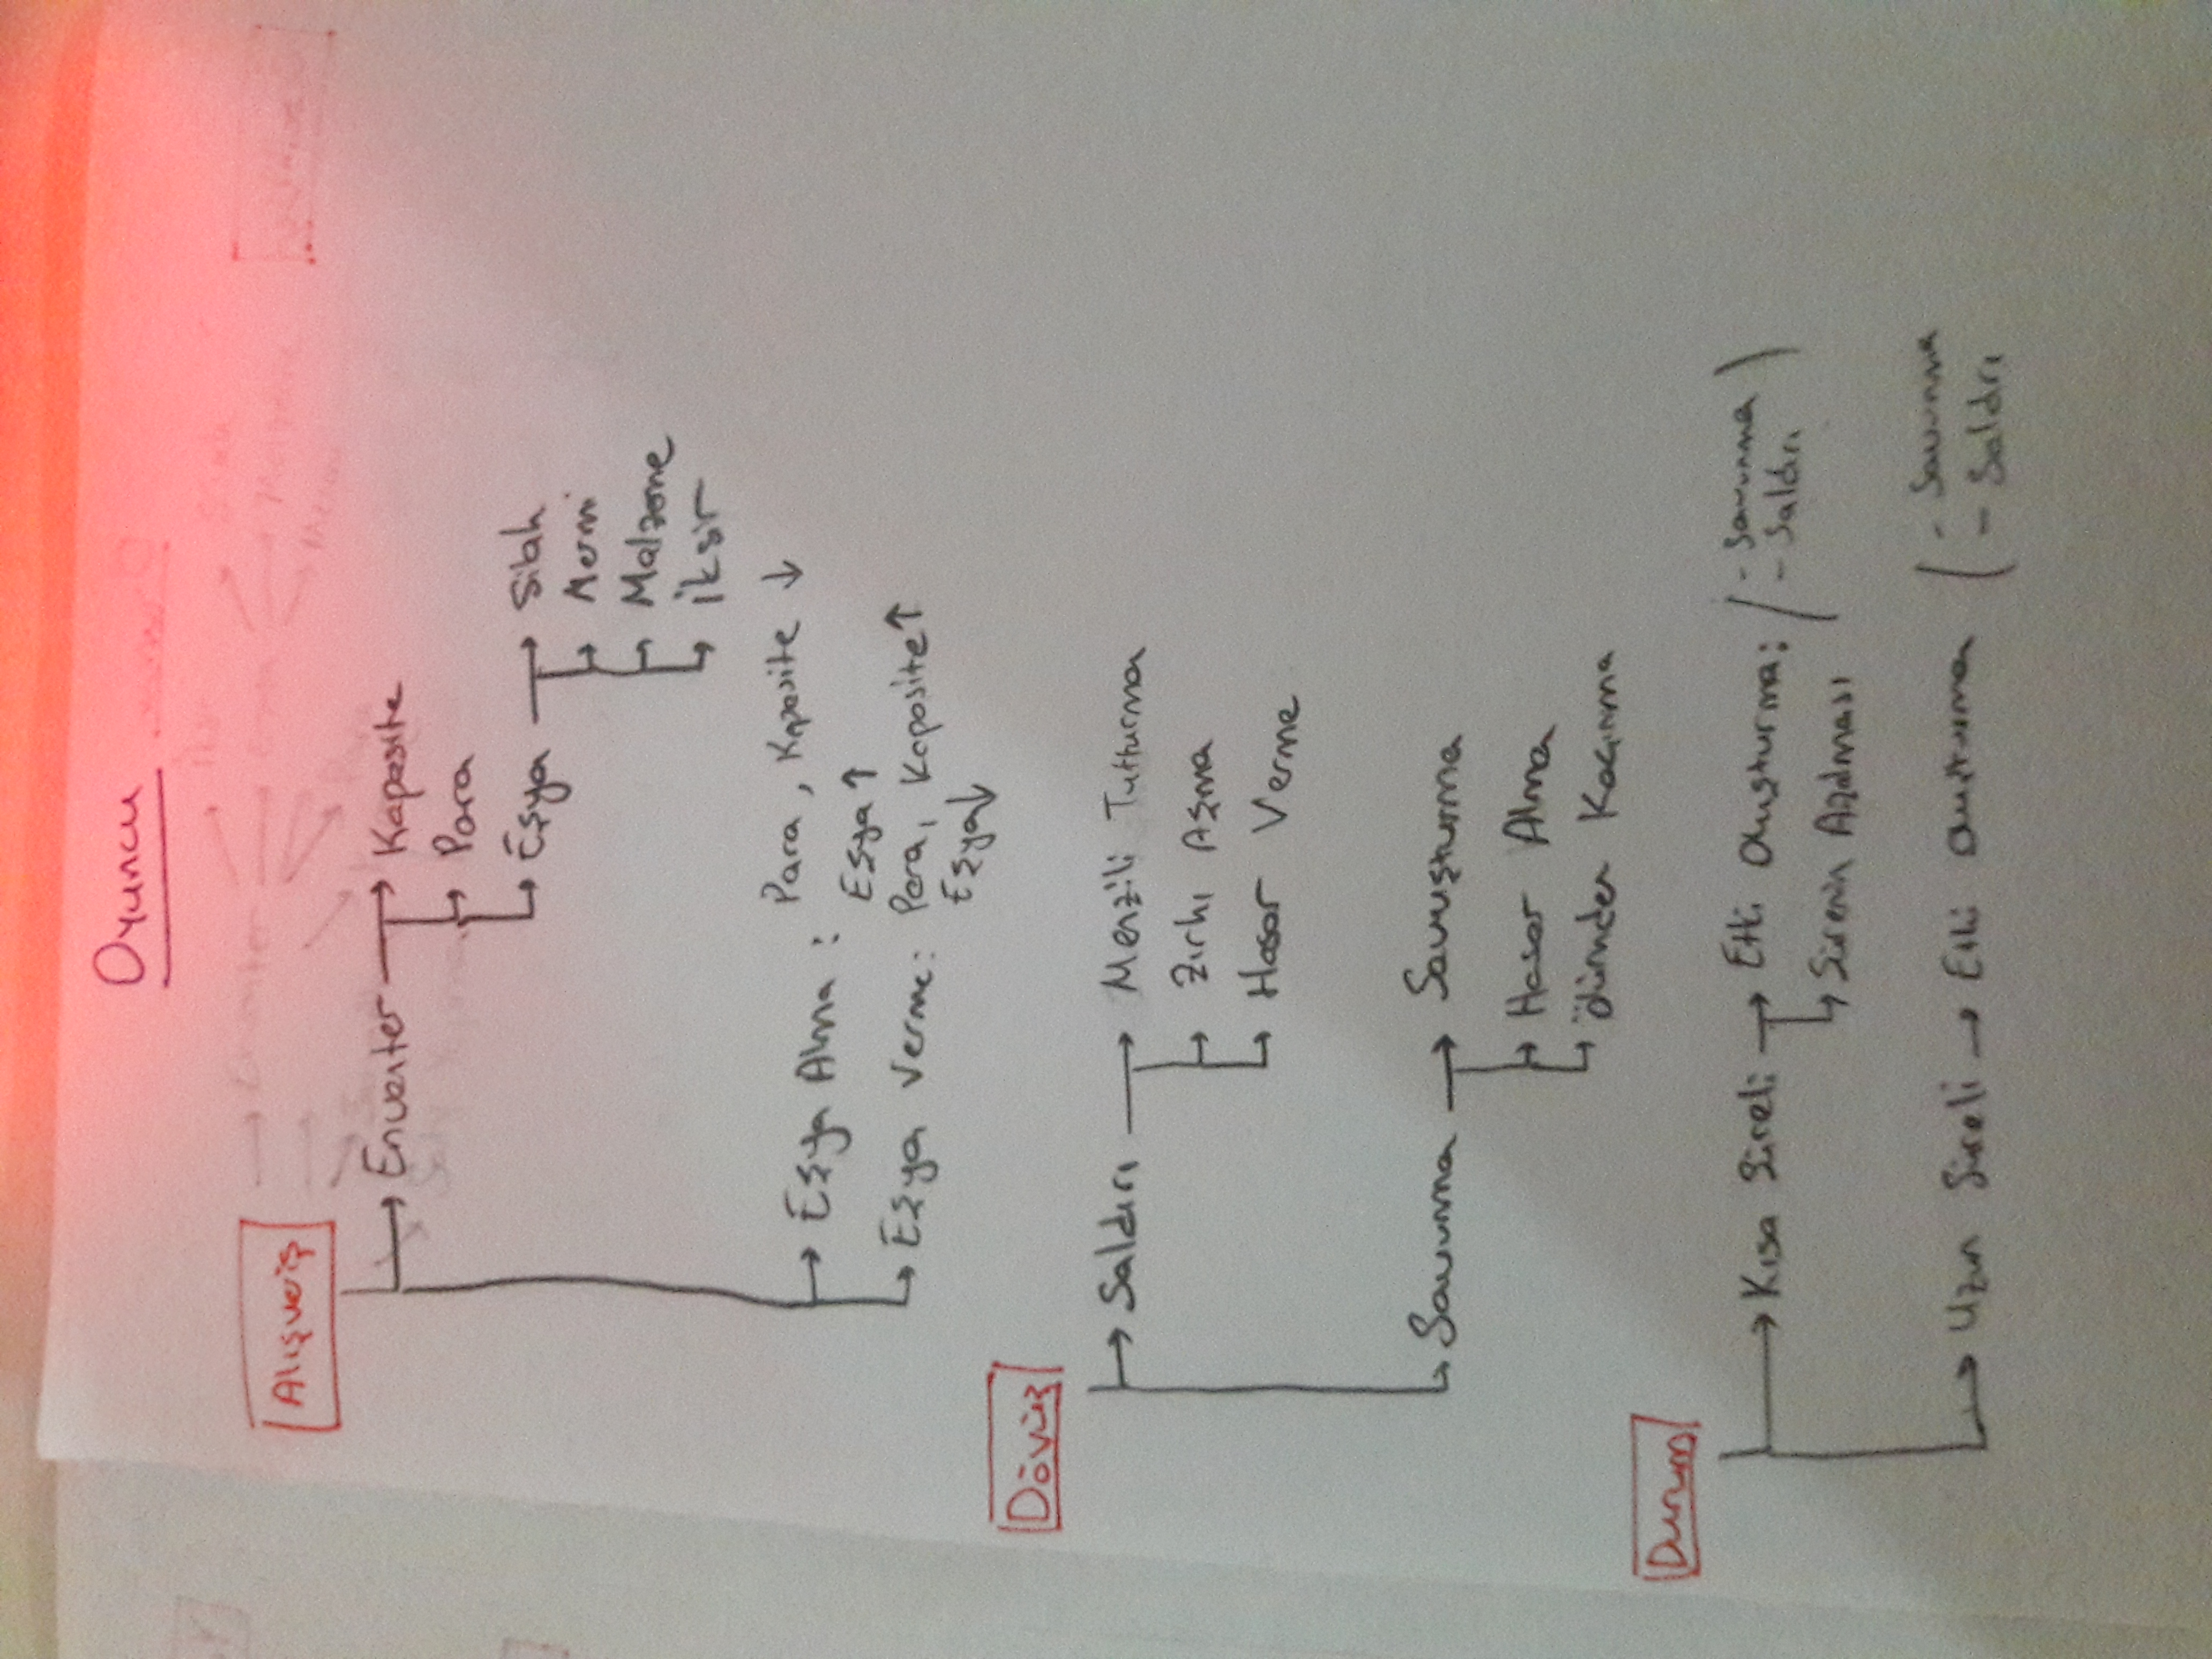 Oyuncu
Alışveriş
Envanter → Kapasite
Para
Eşya → Silah
Mermi
Malzeme
İksir
Eşya Alma : Para, Kapasite ↓
Eşya ↑
Eşya Verme: Para, Kapasite ↑
Eşya ↓
Dövüş
Saldırı → Menzili Tutturma
Zırhı Aşma
Hasar Verme
Savunma → Savuşturma
Hasar Alma
Ölümden Kaçınma
Durum
Kısa Süreli → Etki Oluşturma: ( - Savunma )
- Saldırı
Sürenin Azalması
Uzun Süreli → Etki Oluşturma ( - Savunma
- Saldırı